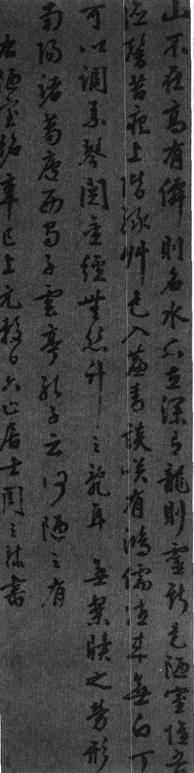 山不在高有僊則名水不在深有龍則靈斯是陋室惟吾
德馨苔痕上階綠艸色入簾青談笑有鴻儒往來無白丁
可以調素琴閱金經無絲竹之亂耳無案牘之勞形
南陽諸葛廬西蜀子雲亭孔子云何陋之有
右陋室銘辛巳上元後日六止居士周之林書